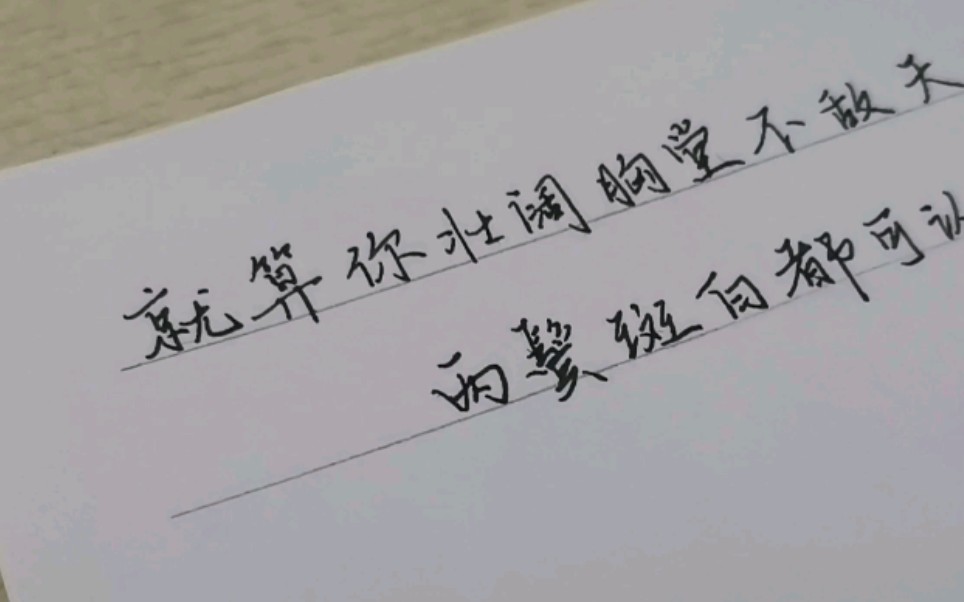 就算你壮阔胸膛不敌天
两鬓斑白都可认